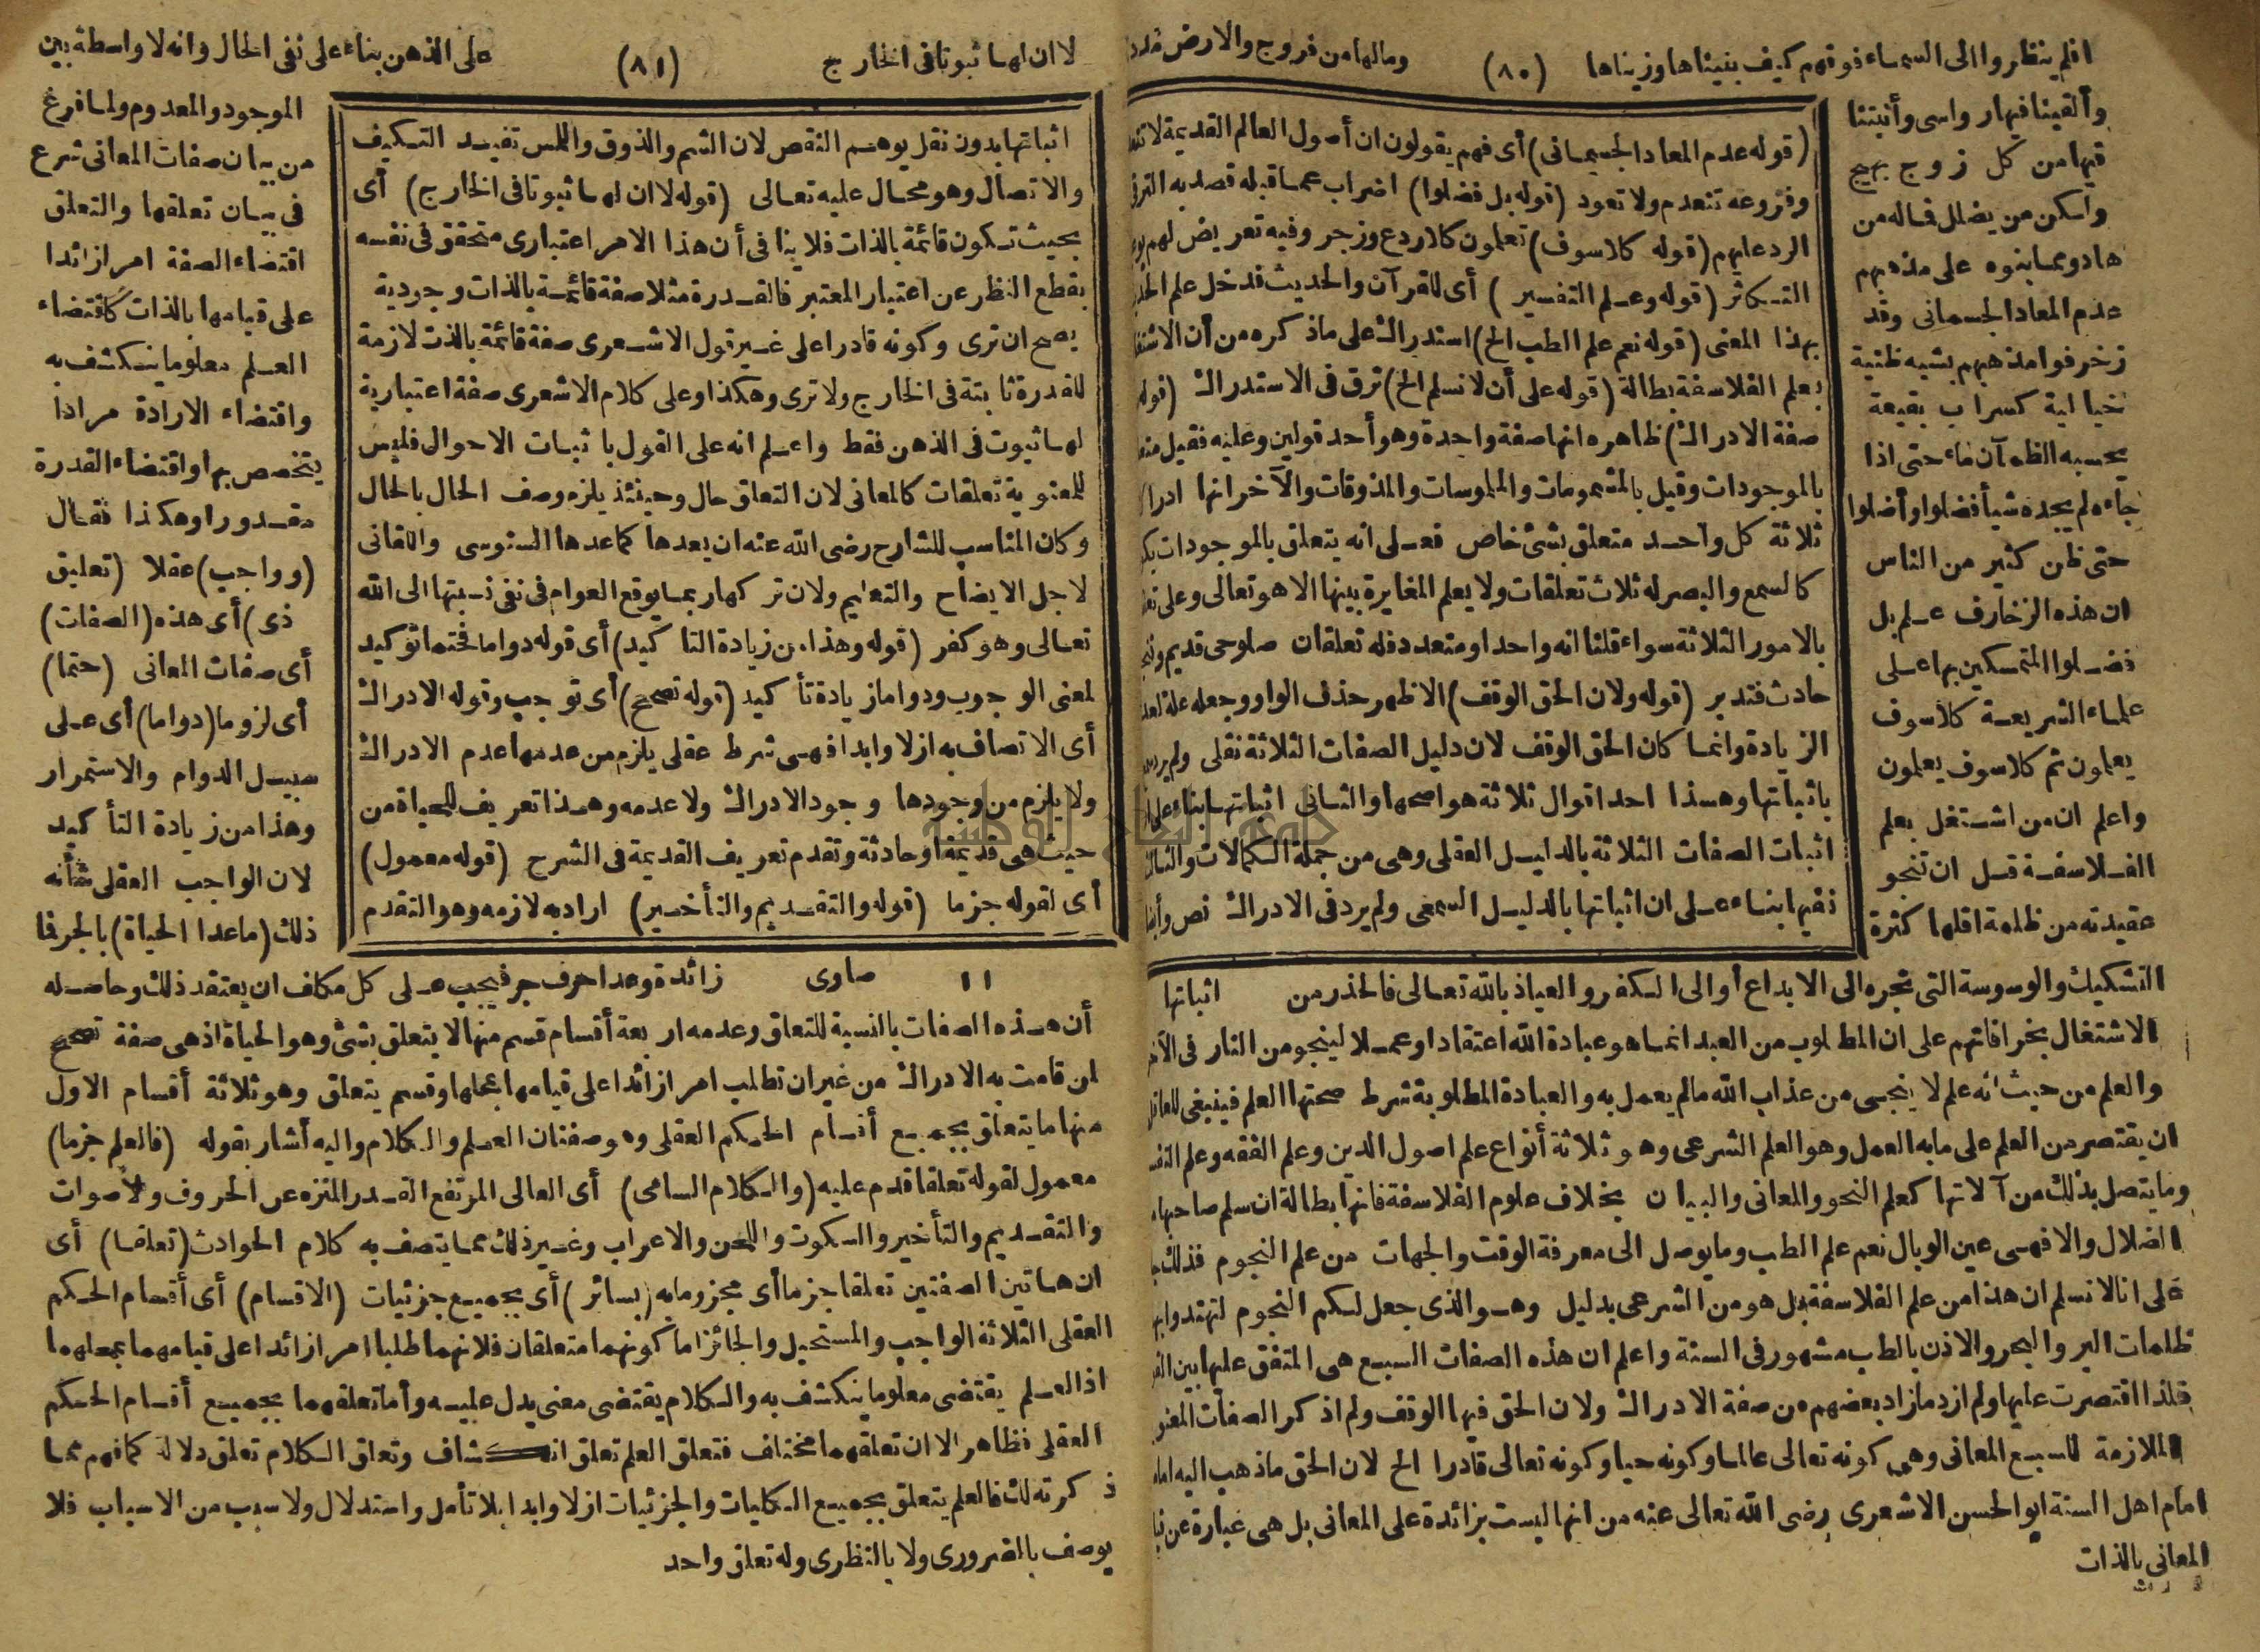 افلم ينظروا الى السماء فوقهم كيف بنيناها وزيناها (٨٠) ومالها من فروج والارض مدد
وألقينا فيها رواسى وأنبتنا
فيها من كل زوج بهيج
ولكن من يضلل فماله من
هاد ومما بنوه على مذهبهم
عدم المعاد الجسمانى وقد
زخرفوا مذهبهم بشبه ظنية
خيالية كسراب بقيعة
يحسبه الظمآن ماء حتى اذا
جاءه لم يجده شيأ فضلوا وأضلوا
حتى ظن كثير من الناس
ان هذه الزخارف علم بل
فضلوا المتمسكين بها على
علماء الشريعة كلا سوف
يعلمون ثم كلا سوف يعلمون
واعلم ان من اشتغل بعلم
الفلاسفة قل ان تنجو
عقيدته من ظلمة اقلها كثرة
التشكيك والوسوسة التى تجره الى الابداع أو الى الكفر والعياذ بالله تعالى فالحذر من
الاشتغال بخرافاتهم على ان المطلوب من العبد انما هو عبادة الله اعتقادا وعملا لينجو من النار فى
والعلم من حيث انه علم لا ينجى من عذاب الله مالم يعمل به والعبادة المطلوبة شرط صحتها العلم فينبغى للعاقل
ان يقتصر من العلم على ما به العمل وهو العلم الشرعى وهو ثلاثة أنواع علم اصول الدين وعلم الفقه وعلم
وما يتصل بذلك من آلاتها كعلم النحو والمعانى والبيان بخلاف علوم الفلاسفة فانها بطالة ان سلم صاحبها
الضلال والا فهى عين الوبال نعم علم الطب وما يوصل الى معرفة الوقت والجهات من علم النجوم فذلك
على انا لا نسلم ان هذا من علم الفلاسفة بل هو من الشرعى بدليل وهو الذى جعل لكم النجوم لتهتدوا بها
ظلمات البر والبحر والاذن بالطب مشهور فى السنة واعلم ان هذه الصفات السبع هى المتفق عليها بين
فلذا اقتصرت عليها ولم ازد ما زاد بعضهم من صفة الادراك ولان الحق فيها الوقف ولم اذكر الصفات
الملازمة للسبع المعانى وهى كونه تعالى عالما وكونه حيا وكونه تعالى قادرا الخ لان الحق ما ذهب اليه
امام اهل السنة ابو الحسن الاشعرى رضى الله تعالى عنه من انها ليست بزائدة على المعانى بل هى عبارة عن
المعانى بالذات
(قوله عدم المعاد الجسمانى) أى فهم يقولون ان أصول العالم القديمة لا
وفروعه تنعدم ولا تعود (قوله بل فضلوا) اضراب عما قبله قصد به
الرد عليهم (قوله كلا سوف) تعلمون كلا ردع وزجر وفيه تعريض لهم
التكاثر (قوله وعلم التفسير) أى للقرآن والحديث فدخل علم
بهذا المعنى (قوله نعم علم الطب الخ) استدراك على ما ذكره من أن
بعلم الفلاسفة بطالة (قوله على أن لا نسلم الخ) ترق فى الاستدراك (قوله
صفة الادراك) ظاهره انها صفة واحدة وهو أحد قولين وعليه فقيل
بالموجودات وقيل بالمشمومات والملموسات والمذوقات والآخر انها
ثلاثة كل واحد متعلق بشئ خاص فعلى انه يتعلق بالموجودات
كالسمع والبصر له ثلاث تعلقات ولا يعلم المغايرة بينها الا هو تعالى وعلى
بالامور الثلاثة سواء قلنا انه واحد او متعدد فله تعلقان صلوحى قديم
حادث فتدبر (قوله ولان الحق الوقف) الاظهر حذف الواو وجعله علة
الزيادة وانما كان الحق الوقف لان دليل الصفات الثلاثة نقلى ولم
باثباتها وهذا احد اقوال ثلاثة هو اصحها والثانى اثباتها بناء على
اثبات الصفات الثلاثة بالدليل العقلى وهى من جملة الكمالات
نفيها بناء على ان اثباتها بالدليل السمعى ولم يرد فى الادراك نص
اثباتها
لا ان لها ثبوتا فى الخارج (٨١) على الذهن بناء على نفى الحال وانه لا واسطة بين
اثباتها بدون نقل يوهم النقص لان الشم والذوق واللمس تفيد التكيف
والاتصال وهو محال عليه تعالى (قوله لا ان لها ثبوتا فى الخارج) أى
بحيث تكون قائمة بالذات فلا ينافى أن هذا الامر اعتبارى متحقق فى نفسه
بقطع النظر عن اعتبار المعتبر فالقدرة مثلا صفة قائمة بالذات وجودية
يصح ان ترى وكونه قادرا على غير قول الاشعرى صفة قائمة بالذات لازمة
للقدرة ثابتة فى الخارج ولا ترى وهكذا وعلى كلام الاشعرى صفة اعتبارية
لها ثبوت فى الذهن فقط واعلم انه على القول باثبات الاحوال فليس
للمعنوية تعلقات كالمعانى لان التعلق حال وحينئذ يلزم وصف الحال بالحال
وكان المناسب للشارح رضى الله عنه ان يعدها كما عدها السنوسى واللقانى
لاجل الايضاح والتعليم ولان تركها ربما يوقع العوام فى نفى نسبتها الى الله
تعالى وهو كفر (قوله وهذا من زيادة التاكيد) أى قوله دواما فحتما توكيد
لمعنى الوجوب ودواما زيادة تأكيد (قوله تصحح) أى توجب وقوله الادراك
أى الاتصاف به ازلا وابدا فهى شرط عقلى يلزم من عدمها عدم الادراك
ولا يلزم من وجودها وجود الادراك ولا عدمه وهذا تعريف للحياة من
حيث هى قديمة أو حادثة وتقدم تعريف القديمة فى الشرح (قوله معمول)
أى لقوله جزما (قوله والتقديم والتأخير) اراد به لازمه وهو التقدم
الموجود والمعدوم ولما فرغ
من بيان صفات المعانى شرع
فى بيان تعلقها والتعلق
اقتضاء الصفة امرا زائدا
على قيامها بالذات كاقتضاء
العلم معلوما ينكشف به
واقتضاء الارادة مرادا
يتخصص بها واقتضاء القدرة
مقدورا وهكذا فقال
(وواجب) عقلا (تعليق
ذى) أى هذه (الصفات)
أى صفات المعانى (حتما)
أى لزوما (دواما) أى على
سبيل الدوام والاستمرار
وهذا من زيادة التأكيد
لان الواجب العقلى شأنه
ذلك (ما عدا الحياة) بالجر فا
١١ صاوى زائدة وعدا حرف جر فيجب على كل مكلف ان يعتقد ذلك وحاصله
أن هذه الصفات بالنسبة للتعلق وعدمه اربعة أقسام قسم منها لا يتعلق بشئ وهو الحياة اذ هى صفة تصحح
لمن قامت به الادراك من غير ان تطلب امرا زائدا على قيامها بمحلها وقسم يتعلق وهو ثلاثة أقسام الاول
منها ما يتعلق بجميع أقسام الحكم العقلى وهو صفتان العلم والكلام واليه أشار بقوله (فالعلم جزما)
معمول لقوله تعلقا قدم عليه (والكلام السامى) أى العالى المرتفع القدر المنزه عن الحروف والاصوات
والتقديم والتأخير والسكوت واللحن والاعراب وغير ذلك مما يتصف به كلام الحوادث (تعلقا) أى
ان هاتين الصفتين تعلقا جزما أى مجزوما به (بسائر) أى بجميع جزئيات (الاقسام) أى أقسام الحكم
العقلى الثلاثة الواجب والمستحيل والجائز اما كونهما متعلقان فلانهما طلبا امرا زائدا على قيامهما بمحلهما
اذ العلم يقتضى معلوما ينكشف به والكلام يقتضى معنى يدل عليه وأما تعلقهما بجميع أقسام الحكم
العقلى فظاهر الا ان تعلقهما مختلف فتعلق العلم تعلق انكشاف وتعلق الكلام تعلق دلالة كما فهم مما
ذكرته لك فالعلم يتعلق بجميع الكليات والجزئيات ازلا وابدا بلا تأمل واستدلال ولا سبب من الاسباب فلا
يوصف بالضرورى ولا بالنظرى وله تعلق واحد